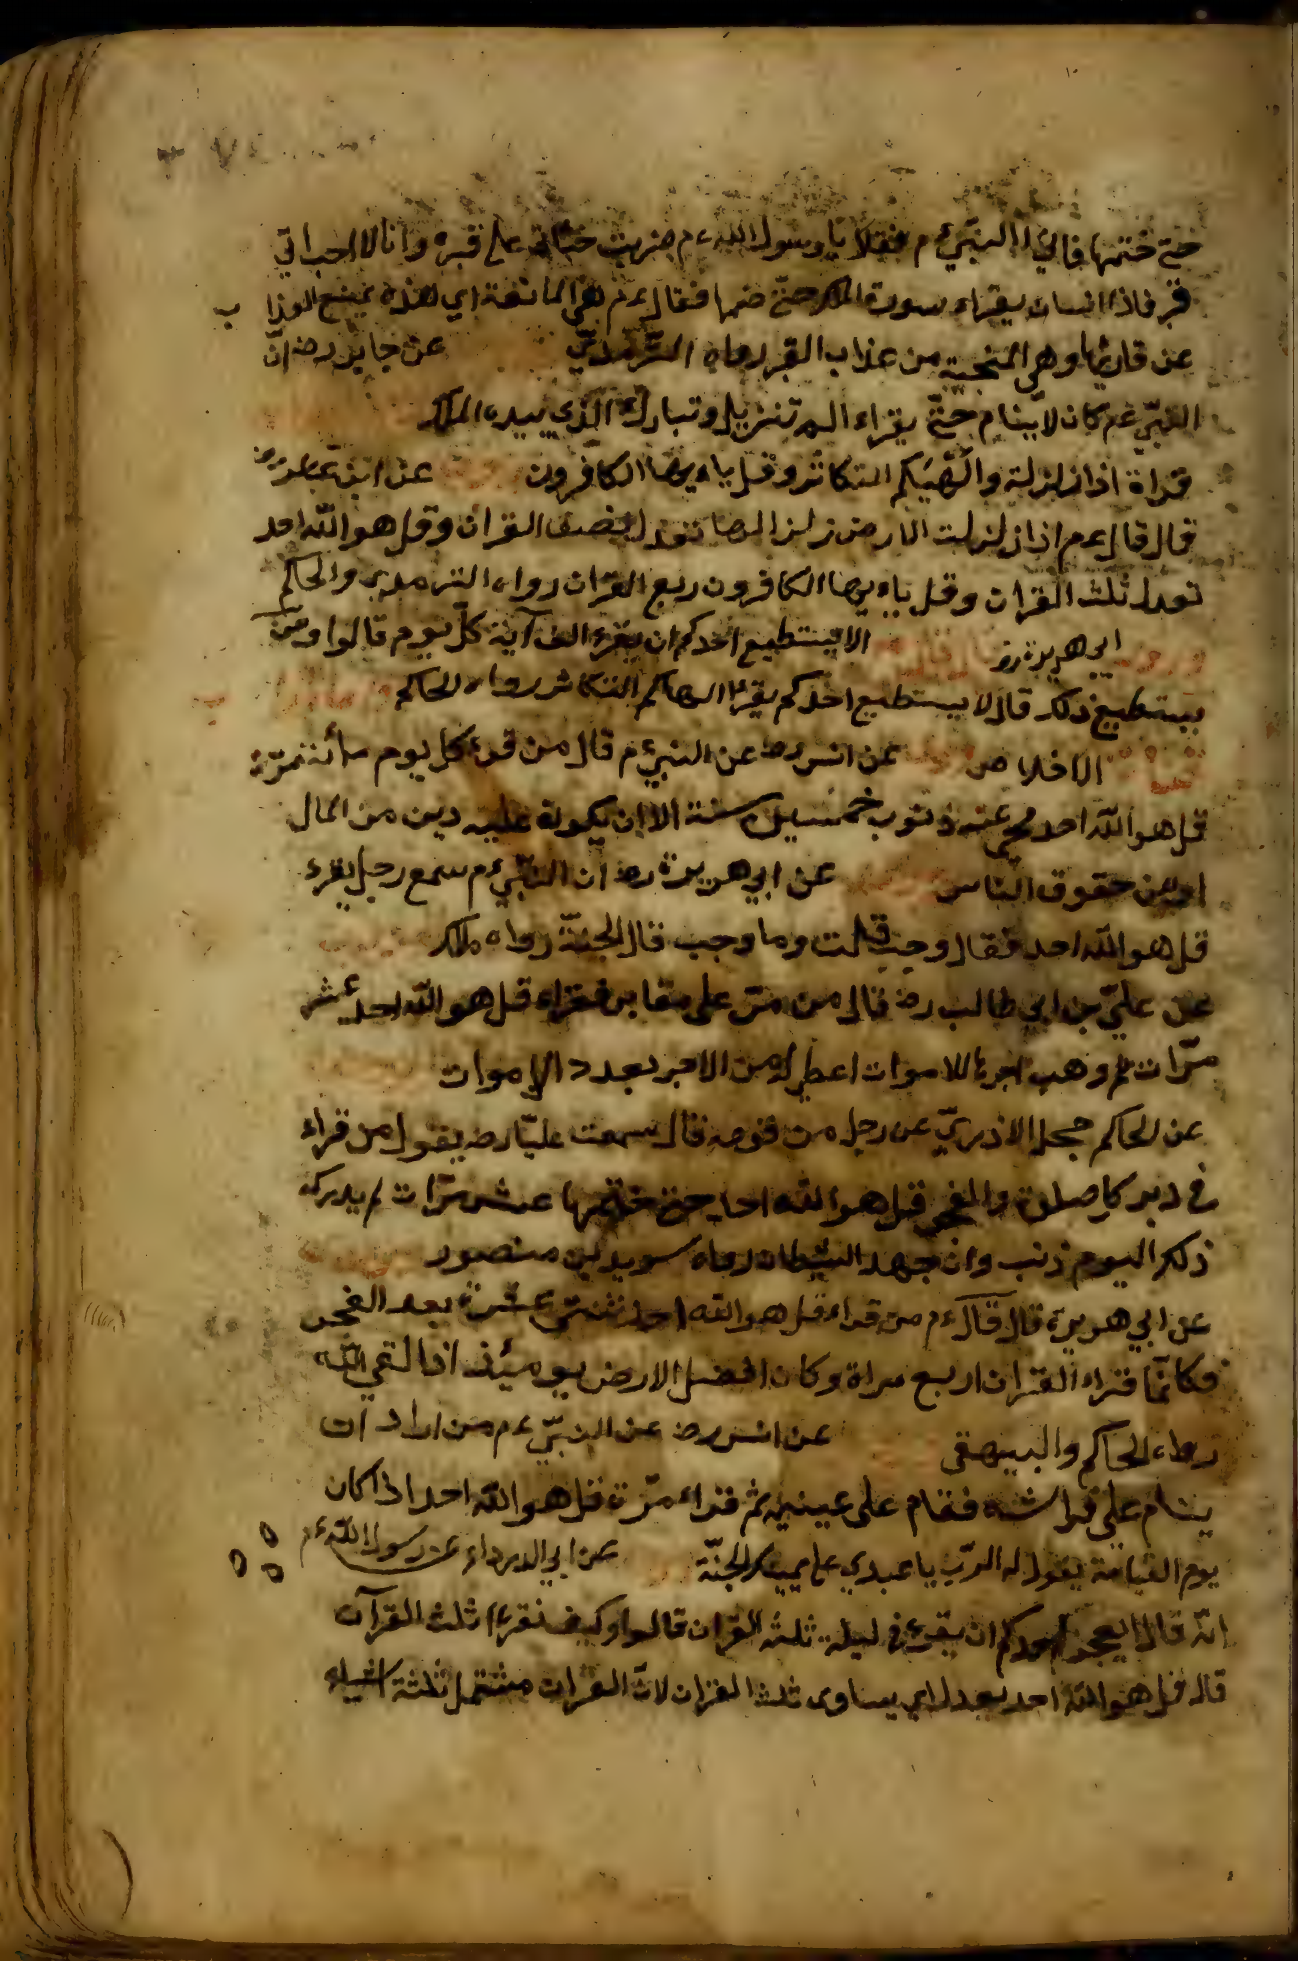 حتى ختمها فاتى النبي ءم فقال يا رسول الله ءم ضربت خبائي على قبره وانا لا احسب انه
قبر فاذا انسان يقراء سورة الملك حتى ختمها فقال ءم هي المانعة اي هذه يمنع العذاب
عن قارئها وهي المنجية من عذاب القبر رواه الترمذيّ عن جابر رضه انّ
النبيّ ءم كان لا ينام حتّى يقراء الم تنزيل وتبارك الّذي بيده الملك
قراة اذا زلزلة والهيكم التكاثر وقل ياءيها الكافرون عن ابن عباس رض
قال قال ءم اذا زلزلت الارض زلزالها تعدل نصف القران وقل هو الله احد
تعدل ثلث القران وقل ياءيها الكافرون ربع القران رواه الترمذي والحاكم
ابي هريرة رض الا يستطيع احدكم ان يقرء الف آية كلّ يوم قالوا ومن
يستطيع ذلك قال لا يستطيع احدكم يقرء الهاكم التكاثر رواه الحاكم
الاخلاص عن انس رضه عن النبي ءم قال من قرء كل يوم مأئة مرّة
قل هو الله احد محي عنه ذنوب خمسين سنة الا ان يكون عليه دين من المال
او من حقوق الناس عن ابي هريرة رضه ان النّبيّ ءم سمع رجل يقرء
قل هو الله احد فقال وجبت قلت وما وجب قال الجنّة رواه ملك
عن عليّ بن ابي طالب رضه قال من مرّ على مقابر فقراء قل هو الله احد عشر
مرّات ثم وهب اجرها للاموات اعطي له من الاجر بعدد الاموات
عن الحاكم حجل الازديّ عن رجل من قومه قال سمعت عليّا رضه يقول من قراء
في دبر كل صلوة والفجر قل هو الله احد حتى ختمها عشر مرّات لم يدركه
ذلك اليوم ذنب وان جهد الشيطان رواه سويد بن منصور
عن ابي هريرة قال قال ءم من قراء قل هو الله احد اثنتى عشرة بعد الفجر
فكانّما قراء القران اربع مراة وكان افضل الارض يومئذ اذا لقي الله
رواه الحاكم والبيهقى عن انس رضه عن النبيّ ءم من اراد ان
ينام على فراشه فقام على عينيه ثم قراء مرّة قل هو الله احد اذا كان
يوم القيامة يقول له الرّب يا عبدي على يمينك الجنّة عن ابي الدرداء عن رسول الله ءم
انّه قال ايعجز احدكم ان يقرء في ليلة ثلث القران قالوا وكيف نقرء ثلث القرآن
قال قل هو الله احد يعدل اي يساوى ثلث القران لانّ القران مشتمل ثلثة اشياء